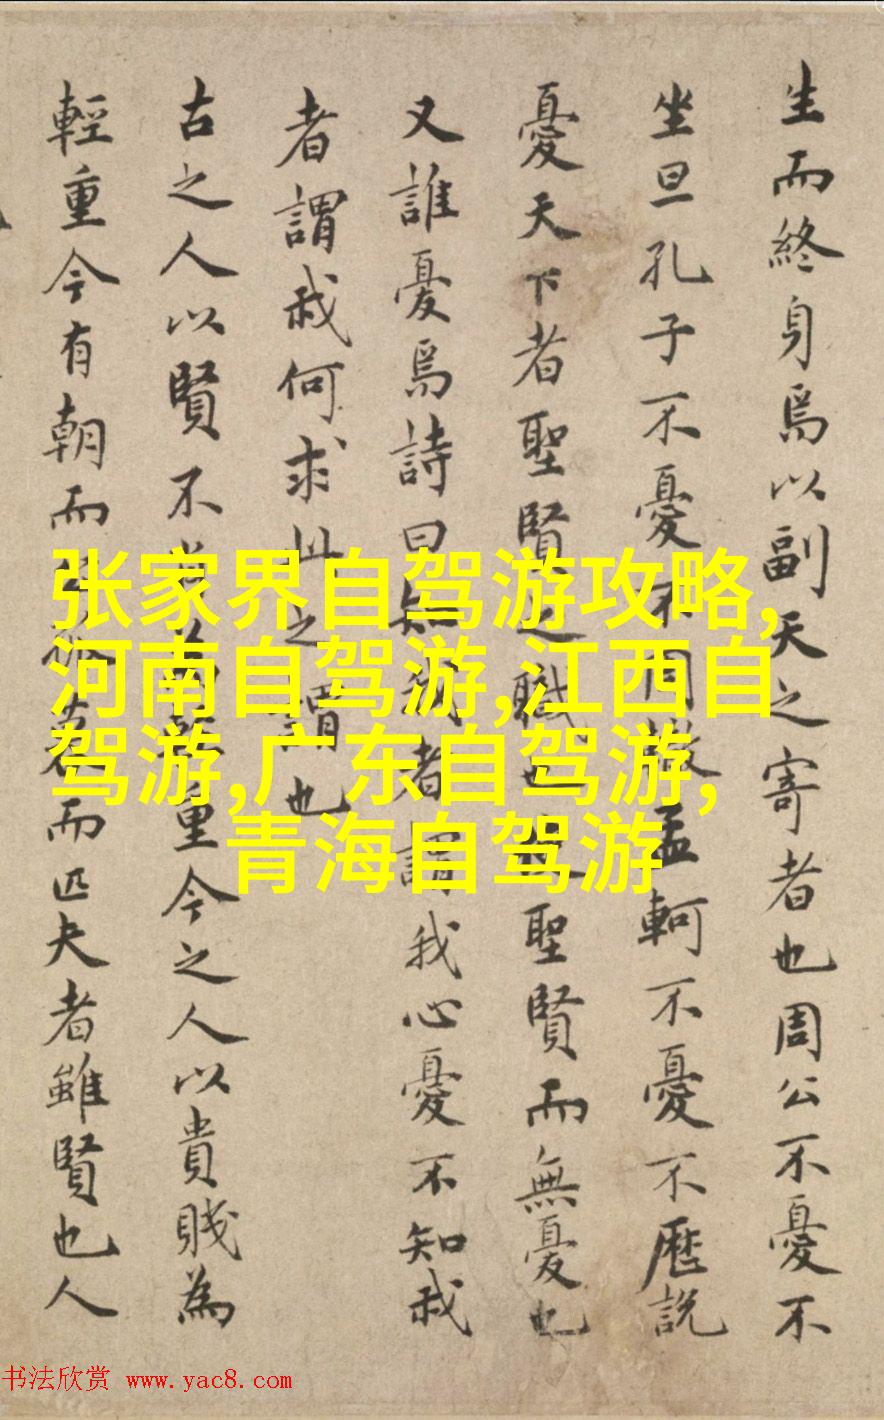 生而終身焉以副天之寄者也周公不憂不
坐旦孔子不憂不同轍孟軻不憂不歷說
憂天下者聖賢之職也聖賢而無憂也
又誰憂焉詩曰知我者謂我心憂不知我
者謂我何求此之謂也
古之人以賢不肖為輕重今之人以貴賤為
輕重今有朝而暮而匹夫者雖賢也人
张家界自驾游攻略,
河南自驾游,江西自
驾游,广东自驾游,
青海自驾游
书法欣赏 www.yac8.com